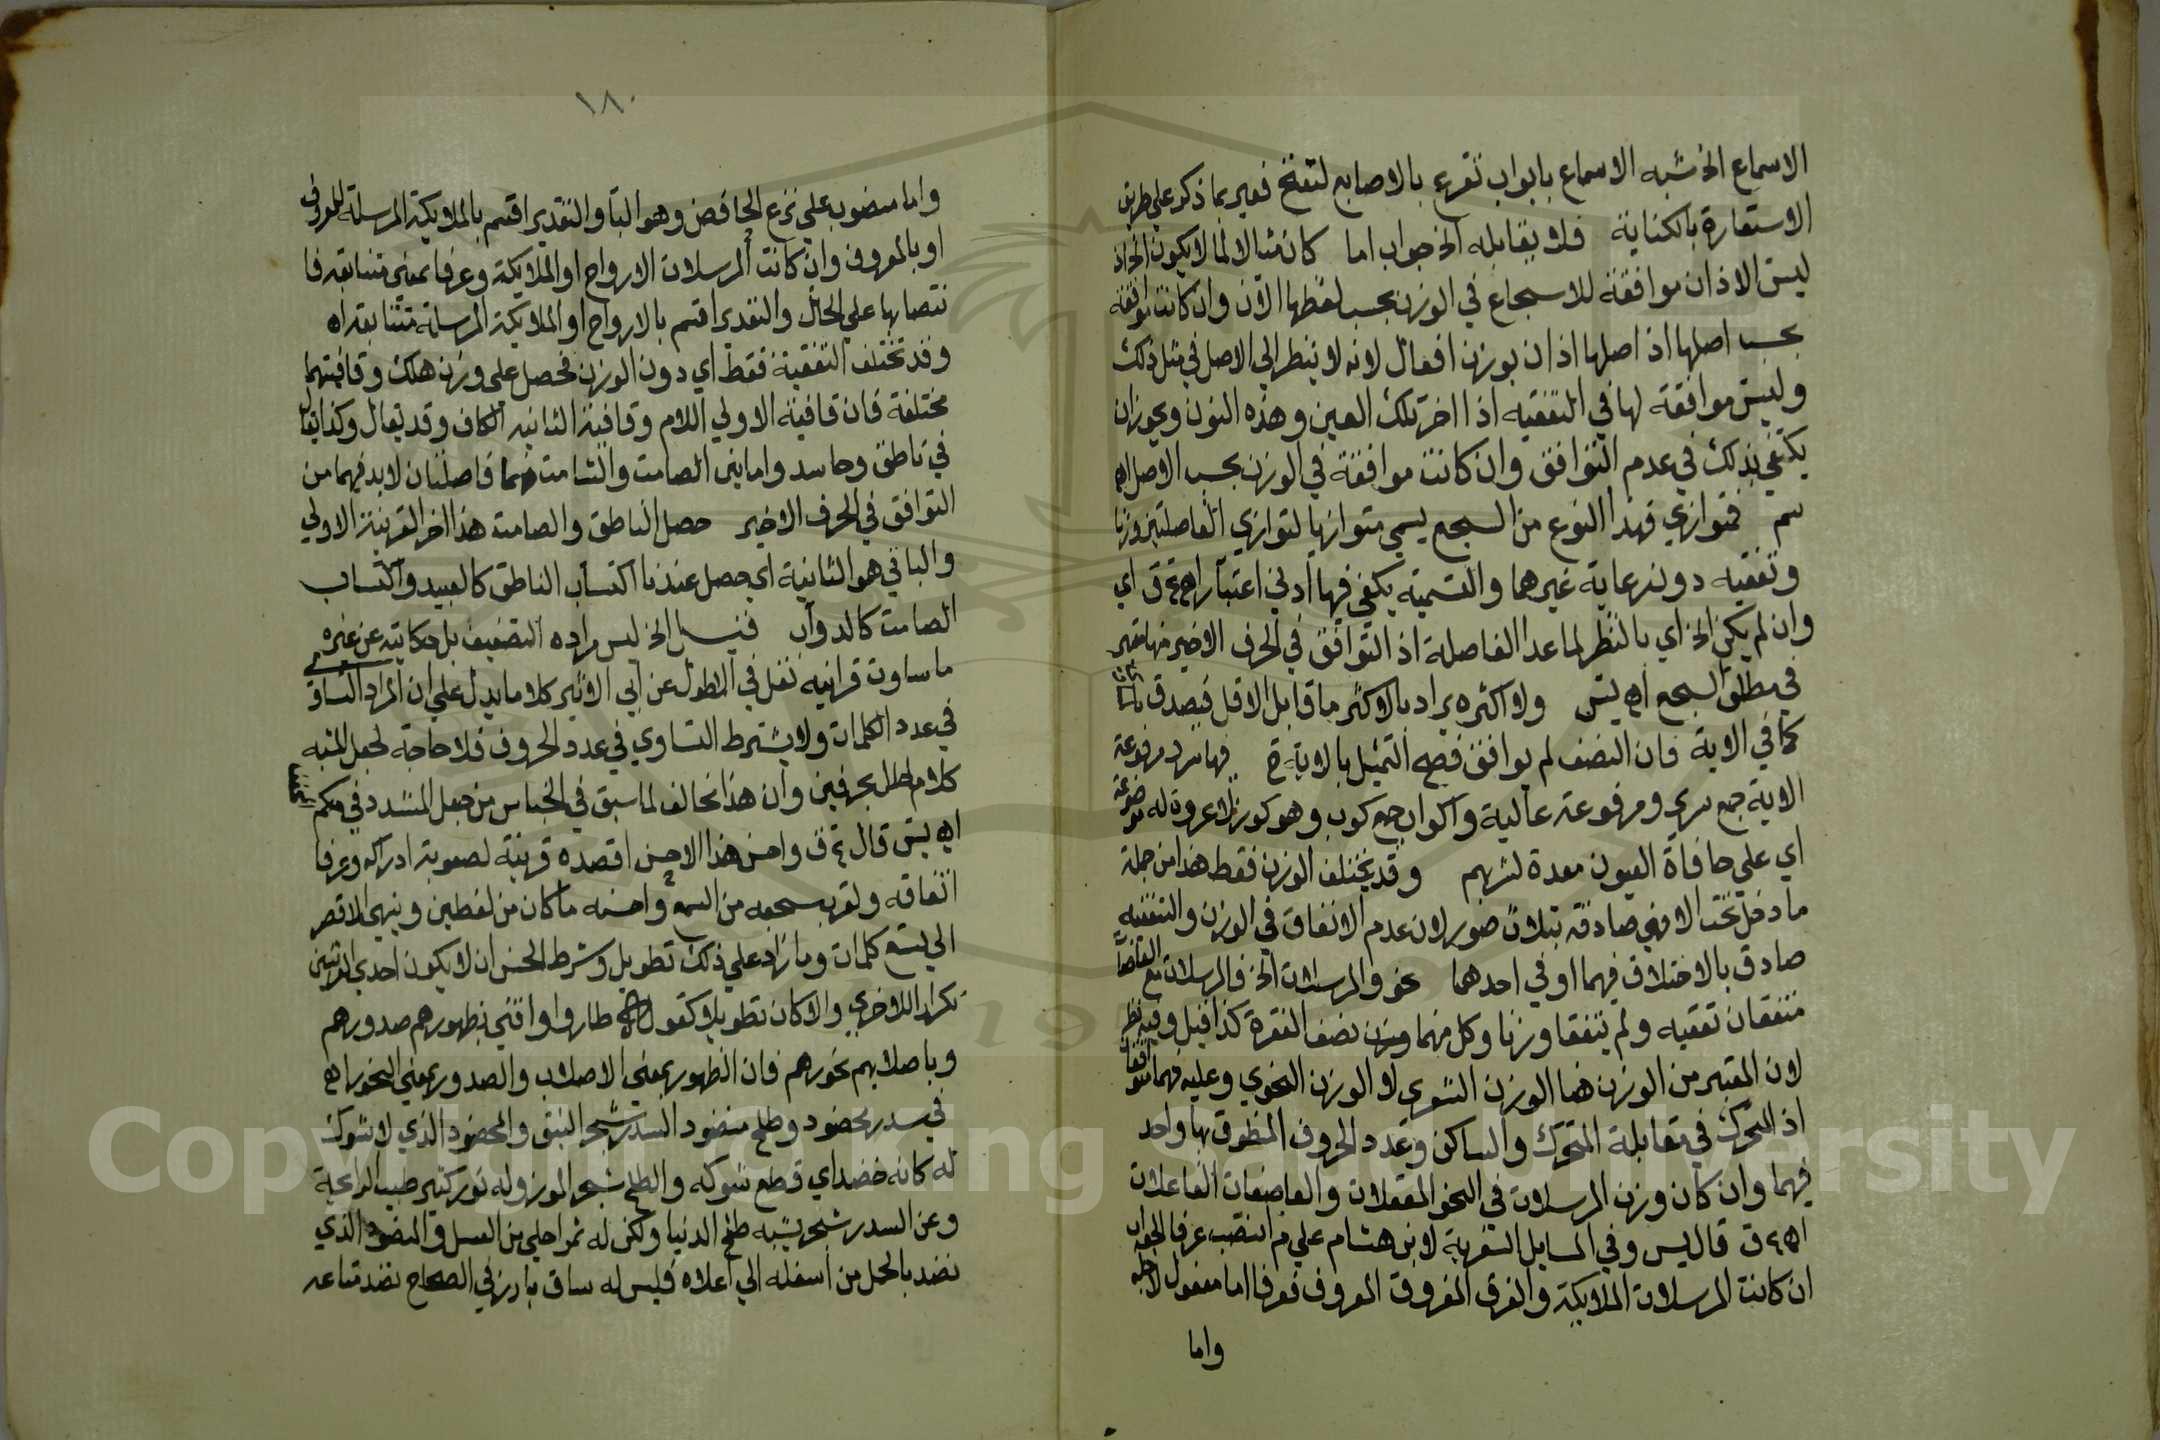 الاسماع الخ شبه الاسماع بابواب تقرع بالاصابع لتفتح فعبر بما ذكر علي طريق
الاستعارة بالكناية فلا يقابله الخ جواب اما كان مثالا لما لا يكون الخ اذ
ليس الاذان موافقة للاسجاع في الوزن بحسب لفظها الآن وان كانت موافقة
بحسب اصلها اذ اصلها اذان بوزن افعال لانه لا ينظر الي الاصل في مثل ذلك
وليس موافقة لها في التقفيه اذ اخر تلك العين وهذه النون ويجوز ان
يكتفي بذلك في عدم التوافق وان كانت موافقة في الوزن بحسب الاصل اه
سم فمتوازي فهذا النوع من السجع يسمي متوازيا لتوازي الفاصلتين وزنا
وتقفيه دون رعاية غيرهما والتسمية يكفي فيها ادني اعتبار اه ع ق اي
وان لم يكن الخ اي بالنظر لما عدا الفاصلة اذ التوافق في الحرف الاخير منها معتبر
في مطلق السجع اه يس ولا اكثره يراد بالاكثر ما قابل الاقل فيصدق بالنصف
كما في الاية فان النصف لم يوافق فصح التمثيل بالاية فيها سرر مرفوعة
الاية جمع سرير ومرفوعة عالية واكواب جمع كوب وهو كوز لا عروة له موضوعة
اي علي حافاة العيون معدة لشربهم وقد يختلف الوزن فقط هذا من جملة
ما دخل تحت الا فهي صادقة بثلاث صور لان عدم الاتفاق في الوزن والتقفيه
صادق بالاختلاف فيهما او في احدهما نحو والمرسلات الخ فالمرسلات مع العاصفات
متفقان تقفيه ولم يتفقا وزنا وكل منهما وزن نصف الفقرة كذا قيل وفيه نظر
لان المعتبر من الوزن هنا الوزن الشعري لا الوزن النحوي وعليه فهما متوافقان
اذ المتحرك في مقابلة المتحرك والساكن وعدد الحروف المنطوق بها واحد
فيهما وان كان وزن المرسلات في النحو المفعلات والعاصفات الفاعلات
اه ع ق قال يس وفي المسايل السفرية لابن هشام علي م انتصب عرفا الجواب
ان كانت المرسلات الملايكة والعرف المعروف فعرفا اما مفعول لاجله
واما
١٨٠
واما منصوب علي نزع الخافض وهو الباء والتقدير اقسم بالملايكة المرسلة للمعروف
او بالمعروف وان كانت المرسلات الارواح او الملايكة وعرفا بمعني متتابعة فا
نتصابها علي الحال والتقدير اقسم بالارواح او الملايكة المرسلة متتابعة اه
وقد تختلف التقفية فقط اي دون الوزن فحصل علي وزن هلك وقافيتهما
مختلفة فان قافية الاولي اللام وقافية الثانيه الكاف وقد يقال وكذا يقال
في ناطق وحاسد واما بين الصامت والشامت فهما فاصلتان لا بد فيهما من
التوافق في الحرف الاخير حصل الناطق والصامت هذا اخر القرينة الاولي
والباقي هو الثانية اي حصل عندنا اكتساب الناطق كالعبيد واكتساب
الصامت كالدواب قيل الخ ليس مراده التضعيف بل حكايته عن غيره
ما ساوت قراينه نقل في المطول عن ابي الاثير كلاما يدل علي ان المراد التساوي
في عدد الكلمات ولا يشترط التساوي في عدد الحروف فلا حاجة لجعل المشبه
كلام بحرفين وان هذا مخالف لما سبق في الجناس من جعل المشدد في حكم المخفف
اه يس قال ع ق واحسن هذا الاحسن اقصده قرينة لصعوبة ادراكه وعزة
اتفاقه ولقرب سجعه من السمع واحسنه ما كان من لفظين وينهي الاقصر
الي تسع كلمات وما زاد علي ذلك تطويل وشرط الحسن ان لا يكون احدي القرينتين
تكرارا للاخري والا كان تطويلا كقول طاروا واقين بظهورهم صدورهم
وباصلابهم نحورهم فان الظهور بمعني الاصلاب والصدور بمعني النحور اه
في سدر مخضود وطلح منضود السدر شجر النبق والمخضود الذي لا شوك
له كانه خضد اي قطع شوكه والطلح شجر الموز وله نور كثير طيب الرايحة
وعن السدر شجر يشبه طلح الدنيا ولكن له ثمر احلي من العسل والمنضود الذي
نضد بالحمل من اسفله الي اعلاه فليس له ساق بارز في الصحاح نضد متاعه